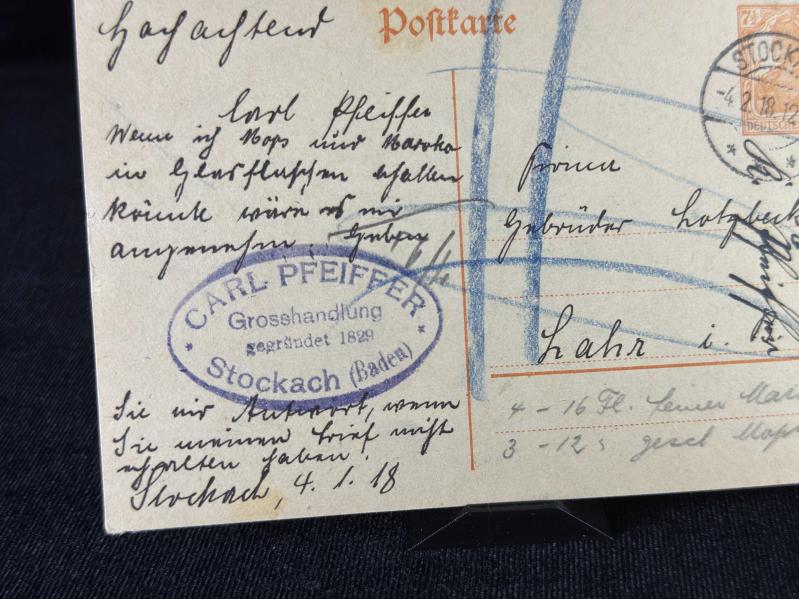 Postkarte
Hochachtend
Carl Pfeiffer
Wenn ich Mops und Maroko
in Glasflaschen erhalten
könnte wäre es mir
angenehm. Geben
CARL PFEIFFER
Grosshandlung
gegründet 1829
Stockach (Baden)
Sie mir Antwort, wenn
Sie meinen Brief nicht
erhalten haben.
Stockach, 4. 1. 18
7½
STOCKA
-4.2.18.12
DEUTSCHE
Firma
Gebrüder Lotzbeck
Lahr i.
4 - 16 Fl. feiner Maro
3 - 12 " Mops